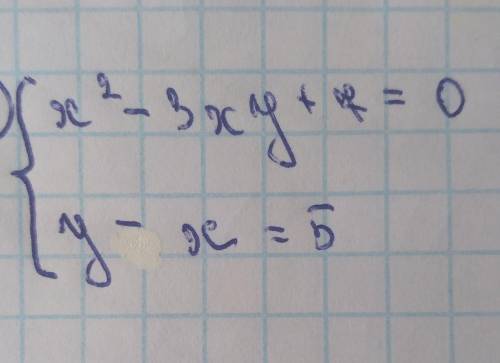 x² - 3xy + 7 = 0
y - x = 5